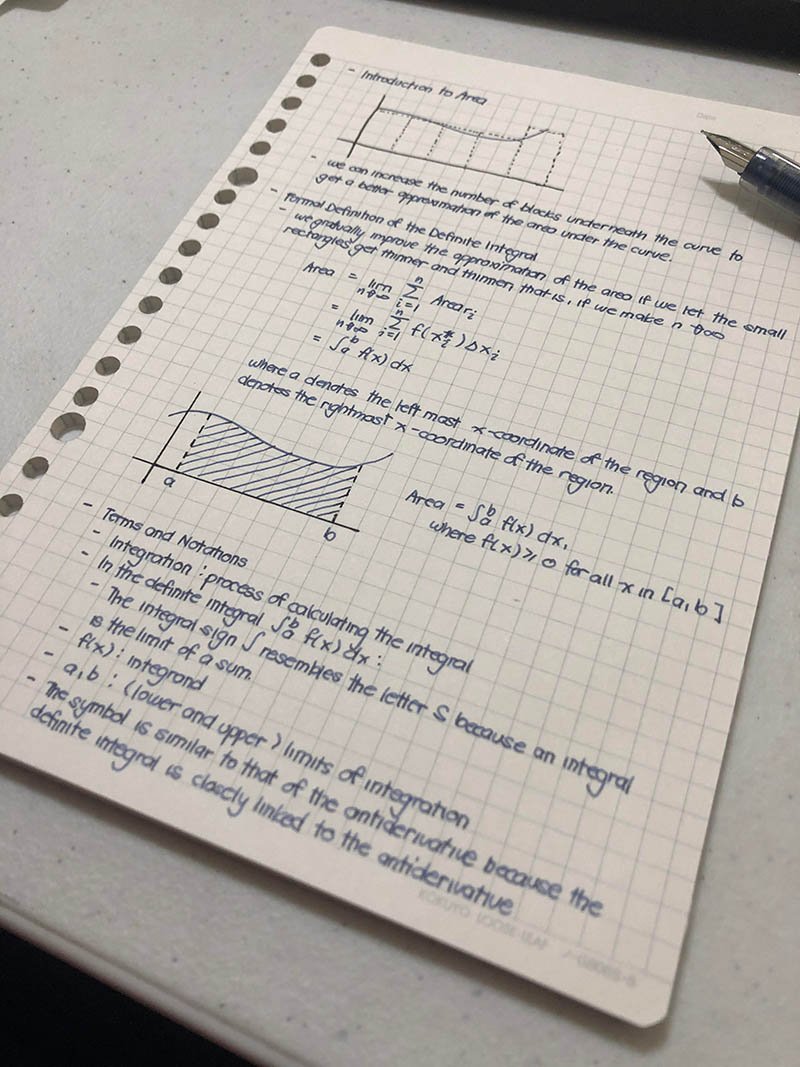 Date
- Introduction to Area
- we can increase the number of blocks underneath the curve to
get a better approximation of the area under the curve.
- Formal Definition of the Definite Integral
- we gradually improve the approximation of the area if we let the small
rectangles get thinner and thinner, that is, if we make n→∞
Area = lim n→∞ ∑ i=1 n Area rᵢ
= lim n→∞ ∑ i=1 n f(xᵢ*)Δxᵢ
= ∫ₐᵇ f(x) dx
where a denotes the left most x-coordinate of the region and b
denotes the rightmost x-coordinate of the region.
a
b
Area = ∫ₐᵇ f(x) dx,
where f(x) ≥ 0 for all x in [a,b]
- Terms and Notations
- Integration : process of calculating the integral
- In the definite integral ∫ₐᵇ f(x) dx :
- The integral sign ∫ resembles the letter S because an integral
is the limit of a sum.
- f(x) : integrand
- a,b : (lower and upper) limits of integration
- The symbol is similar to that of the antiderivative because the
definite integral is closely linked to the antiderivative
KOKUYO LOOSE-LEAF